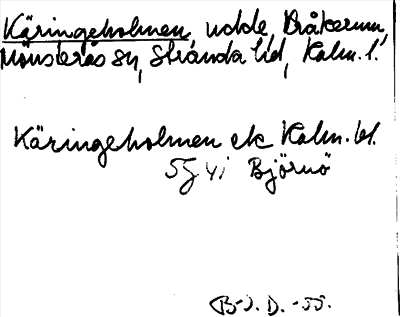 Käringeholmen, udde, Bråkerum,
Mönsterås sn, Stranda hd, Kalm. l.
Käringeholmen ek Kalm. bl.
5G 4i Björnö
B-J. D. -55.